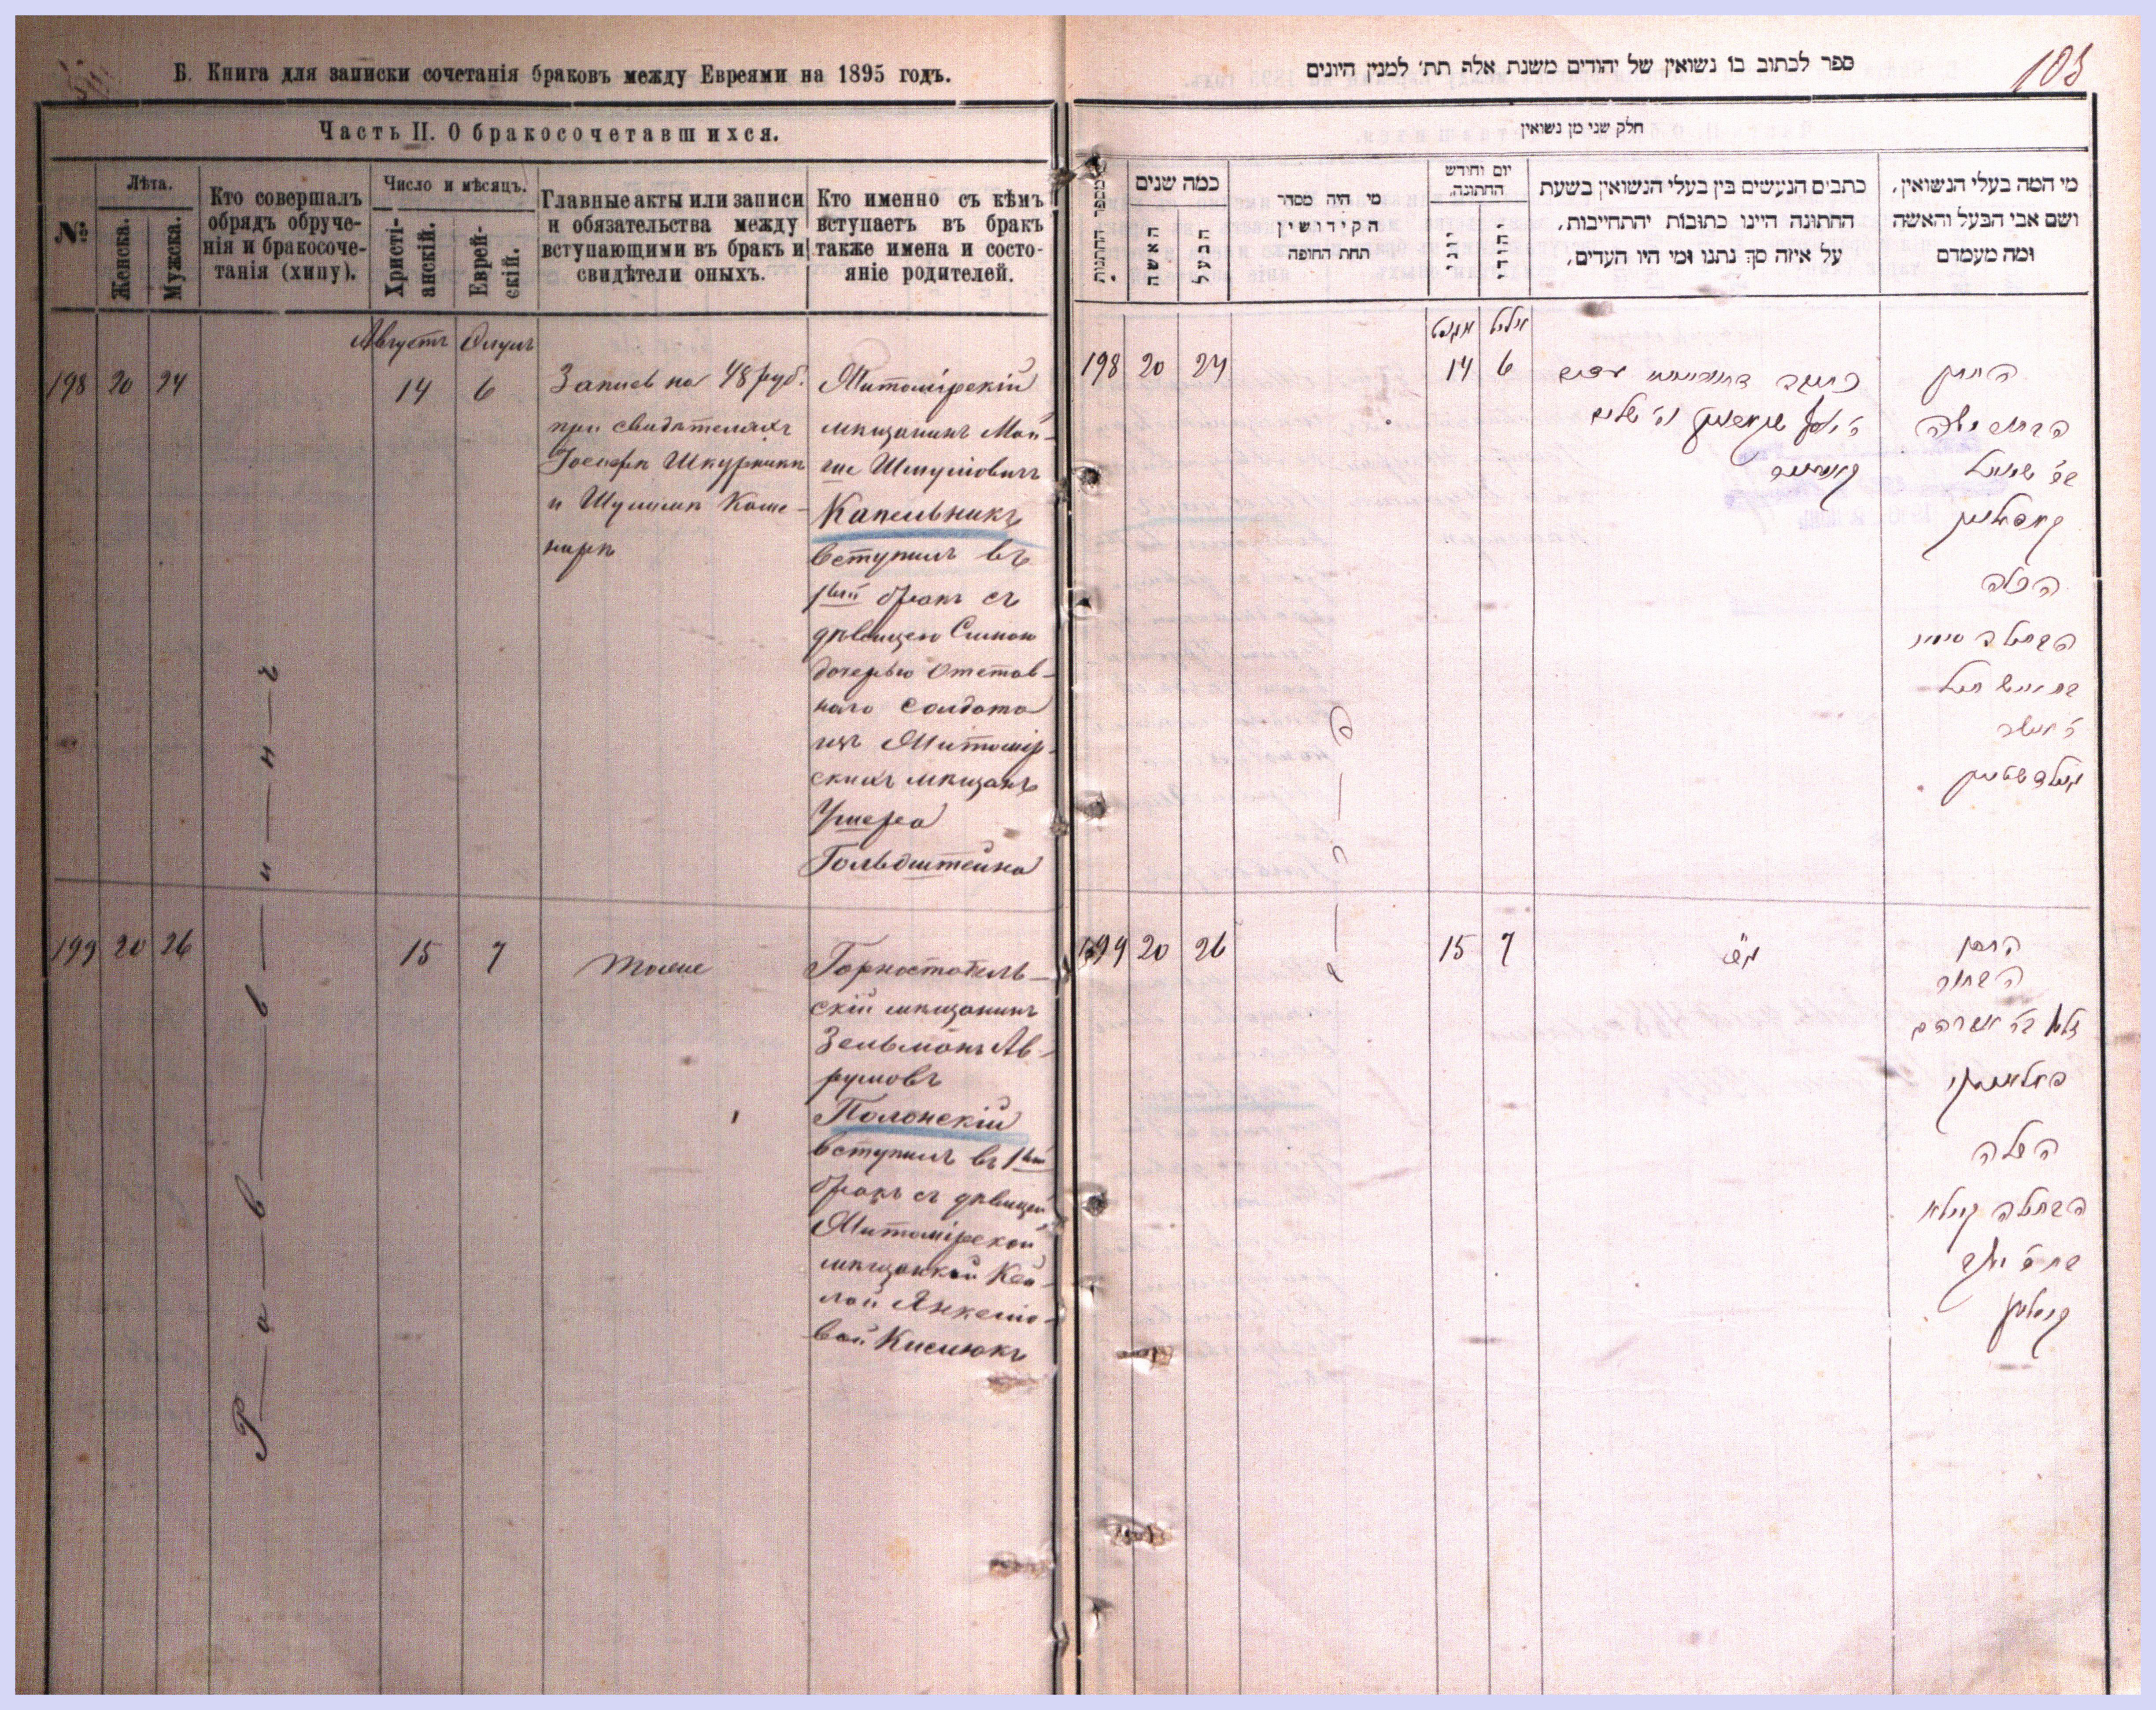 Б. Книга для записки сочетанія браковъ между Евреями на 1895 годъ.
Часть II. О бракосочетавшихся.
№
Лѣта.
Женска.
Мужска.
Кто совершалъ
обрядъ обруче-
нія и бракосоче-
танія (хипу).
Число и мѣсяцъ.
Христі-
анскій.
Еврей-
скій.
Главные акты или записи
и обязательства между
вступающими въ бракъ и
свидѣтели оныхъ.
Кто именно съ кѣмъ
вступаетъ въ бракъ
также имена и состо-
яніе родителей.
Августъ
198 20 24
14 6
Запись на 48 руб.
при свидѣтеляхъ
Іосифѣ Шкурникѣ
и Шулимѣ Каше-
нирѣ
Житомірскій
мѣщанинъ Мой-
ше Шмуліовичъ
Капельникъ
вступилъ въ
1ый бракъ съ
дѣвицею
дочерью Отстав-
ного солдата
изъ Житомір-
скихъ мѣщанъ
Ушера
Гольдштейна
Р—а—в—в—и—н—ъ
199 20 26
15 7
тоже
Горностайполь-
скій мѣщанинъ
Зельманъ Ав-
румовъ
Полонскій
вступилъ въ 1ый
бракъ съ дѣвицей
Житомірской
мѣщанкой Кей-
лой Янкеліо-
вой Кислюкъ
ספר לכתוב בו נשואין של יהודים משנת אלף תת׳ למנין היונים
105
חלק שני מן נשואין
מספר החתונות
כמה שנים
האשה
הבעל
מי היה מסדר
הקידושין
תחת החופה
יום וחודש
החתונה.
יוני
יהודי
כתבים הנעשים בין בעלי הנשואין בשעת
החתונה היינו כתובות יהתחייבות,
על איזה סך נתנו ומי היו העדים,
מי המה בעלי הנשואין,
ושם אבי הבעל והאשה
ומה מעמדם
אויגוסט אלול
198 20 24
14 6
החתן
הבחור משה
בר׳ שמואל
קאפעלניק
הכלה
הבתולה
ר׳ אשר
גאלדשטיין
ה—ר—ב
199 20 26
15 7
החתן
הבחור
זלמן בר׳ אברהם
פאלאנסקי
הכלה
הבתולה קיילא
בת ר׳ יעקב
קיסליוק